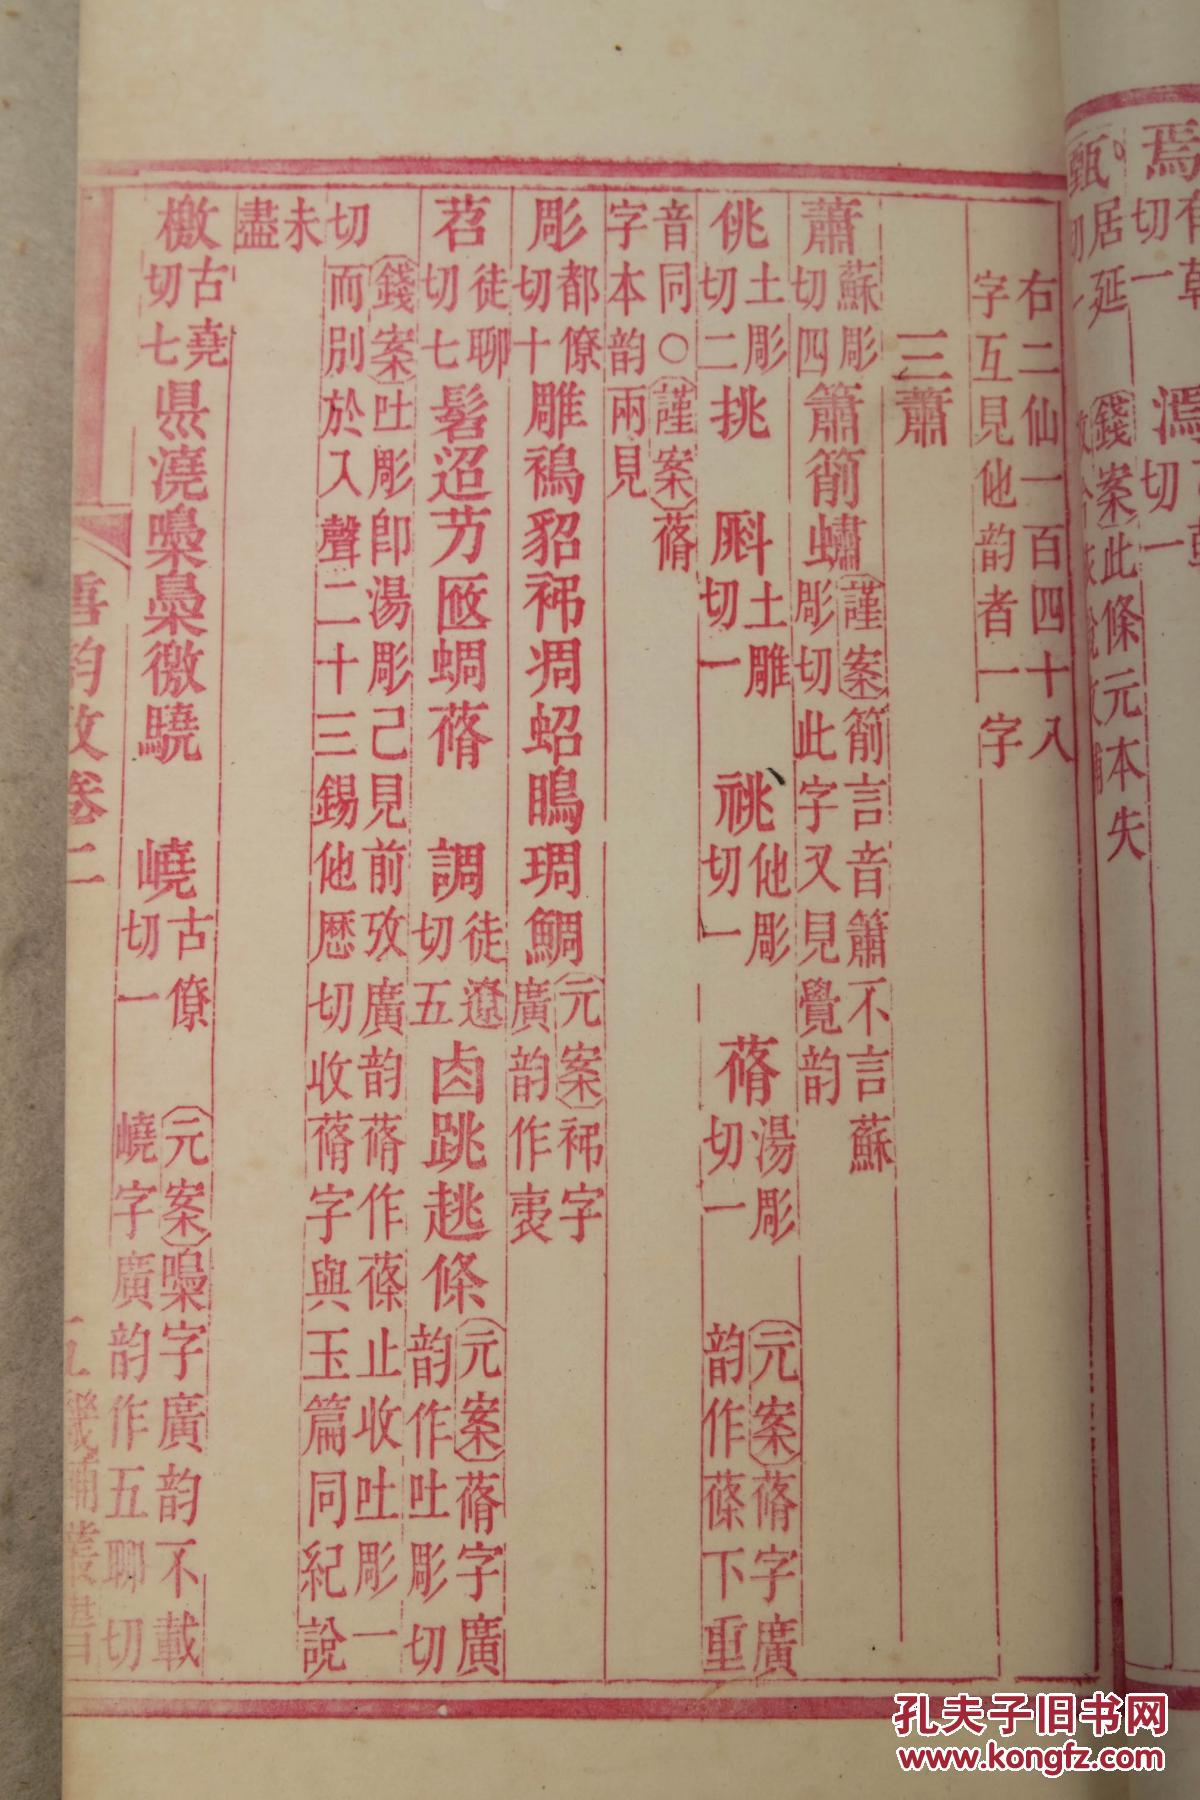 右二仙一百四十八
字互見他韵者一字
三蕭
蕭蘇彫切四簫箾蟰〔謹案〕箾言音簫不言蘇彫切此字又見覺韵
佻土彫切二挑 斢土雕切一 祧他彫切一 蓨湯彫切一 〔元案〕蓨字廣韵作蓧下重
音同○〔謹案〕蓨字本韵兩見
彫都僚切十雕䳂貂祒凋蛁鵰琱鯛〔元案〕祒字廣韵作𧘨
苕徒聊切七髫迢艻匧蜩蓨 調徒遼切五卤跳趒條〔元案〕蓨字廣韵作吐彫切
〔錢案〕吐彫卽湯彫己見前攷廣韵蓨作蓧止收吐彫一切而別於入聲二十三錫他歷切收蓨字與玉篇同紀說
未盡
檄古堯切七県澆嘄梟徼驍 嶢古僚切一 〔元案〕嘄字廣韵不載嶢字廣韵作五聊切
唐韵攷卷二
畿輔叢書
甄居延切一
〔錢案〕此條元本失
孔夫子旧书网
www.kongfz.com